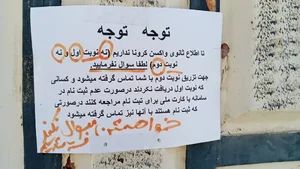 توجه توجه
تا اطلاع ثانوی واکسن کرونا نداریم (نه نوبت اول و نه
نوبت دوم) لطفا سوال نفرمایید.
جهت تزریق نوبت دوم با شما تماس گرفته میشود و کسانی
که نوبت اول دریافت نکردند درصورت عدم ثبت نام در
سامانه با کارت ملی برای ثبت نام مراجعه کنند درصورتی
که ثبت نام هستند با آنها نیز تماس گرفته میشود
خواهشمند سوال نکنید